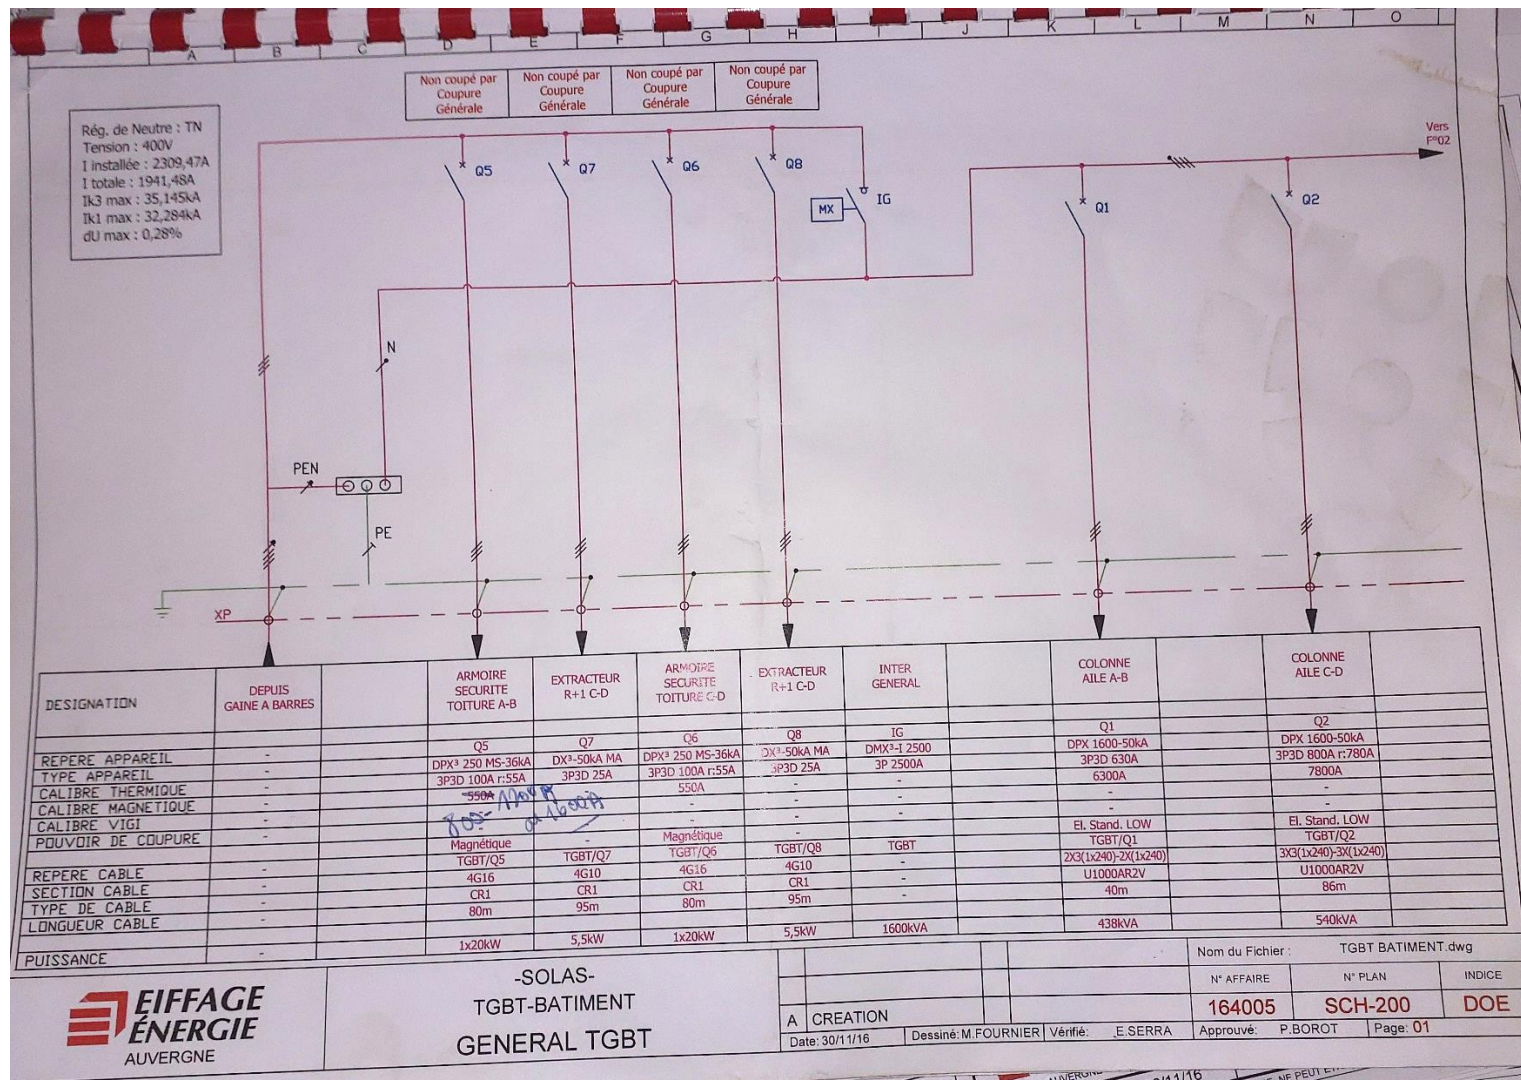 A B C D E F G H I J K L M N O
Non coupé par
Coupure
Générale
Non coupé par
Coupure
Générale
Non coupé par
Coupure
Générale
Non coupé par
Coupure
Générale
Rég. de Neutre : TN
Tension : 400V
I installée : 2309,47A
I totale : 1941,48A
Ik3 max : 35,145kA
Ik1 max : 32,284kA
dU max : 0,28%
Vers
F°02
Q5 Q7 Q6 Q8 IG Q1 Q2
MX
N
PEN
PE
XP
DESIGNATION DEPUIS GAINE A BARRES ARMOIRE SECURITE TOITURE A-B EXTRACTEUR R+1 C-D ARMOIRE SECURITE TOITURE C-D EXTRACTEUR R+1 C-D INTER GENERAL COLONNE AILE A-B COLONNE AILE C-D
REPERE APPAREIL - Q5 Q7 Q6 Q8 IG Q1 Q2
TYPE APPAREIL - DPX³ 250 MS-36kA DX³-50kA MA DPX³ 250 MS-36kA DX³-50kA MA DMX³-I 2500 DPX 1600-50kA DPX 1600-50kA
CALIBRE THERMIQUE - 3P3D 100A r:55A 3P3D 25A 3P3D 100A r:55A 3P3D 25A 3P 2500A 3P3D 630A 3P3D 800A r:780A
CALIBRE MAGNETIQUE - 550A - 550A - - 6300A 7800A
CALIBRE VIGI - - - - - -
POUVOIR DE COUPURE - - - - - - -
Magnétique - Magnétique - - El. Stand. LOW El. Stand. LOW
REPERE CABLE - TGBT/Q5 TGBT/Q7 TGBT/Q6 TGBT/Q8 TGBT TGBT/Q1 TGBT/Q2
SECTION CABLE - 4G16 4G10 4G16 4G10 - 2X3(1x240)-2X(1x240) 3X3(1x240)-3X(1x240)
TYPE DE CABLE - CR1 CR1 CR1 CR1 - U1000AR2V U1000AR2V
LONGUEUR CABLE - 80m 95m 80m 95m - 40m 86m
PUISSANCE - 1x20kW 5,5kW 1x20kW 5,5kW 1600kVA 438kVA 540kVA
EIFFAGE
ÉNERGIE
AUVERGNE
-SOLAS-
TGBT-BATIMENT
GENERAL TGBT
A CREATION
Date: 30/11/16 Dessiné: M.FOURNIER Vérifié: E.SERRA Approuvé: P.BOROT Page: 01
Nom du Fichier : TGBT BATIMENT.dwg
N° AFFAIRE N° PLAN INDICE
164005 SCH-200 DOE